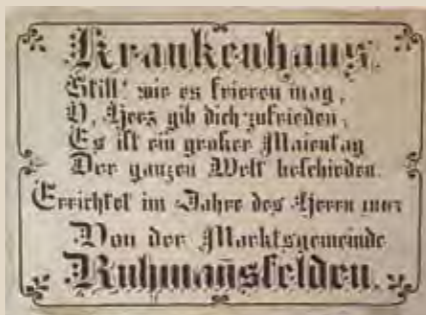 Krankenhaus.
Still! wie es frieren mag,
O, Herz gib dich zufrieden,
Es ist ein großer Maientag
Der ganzen Welt beschieden.
Errichtet im Jahre des Herrn
Von der Marktsgemeinde
Ruhmañsfelden.